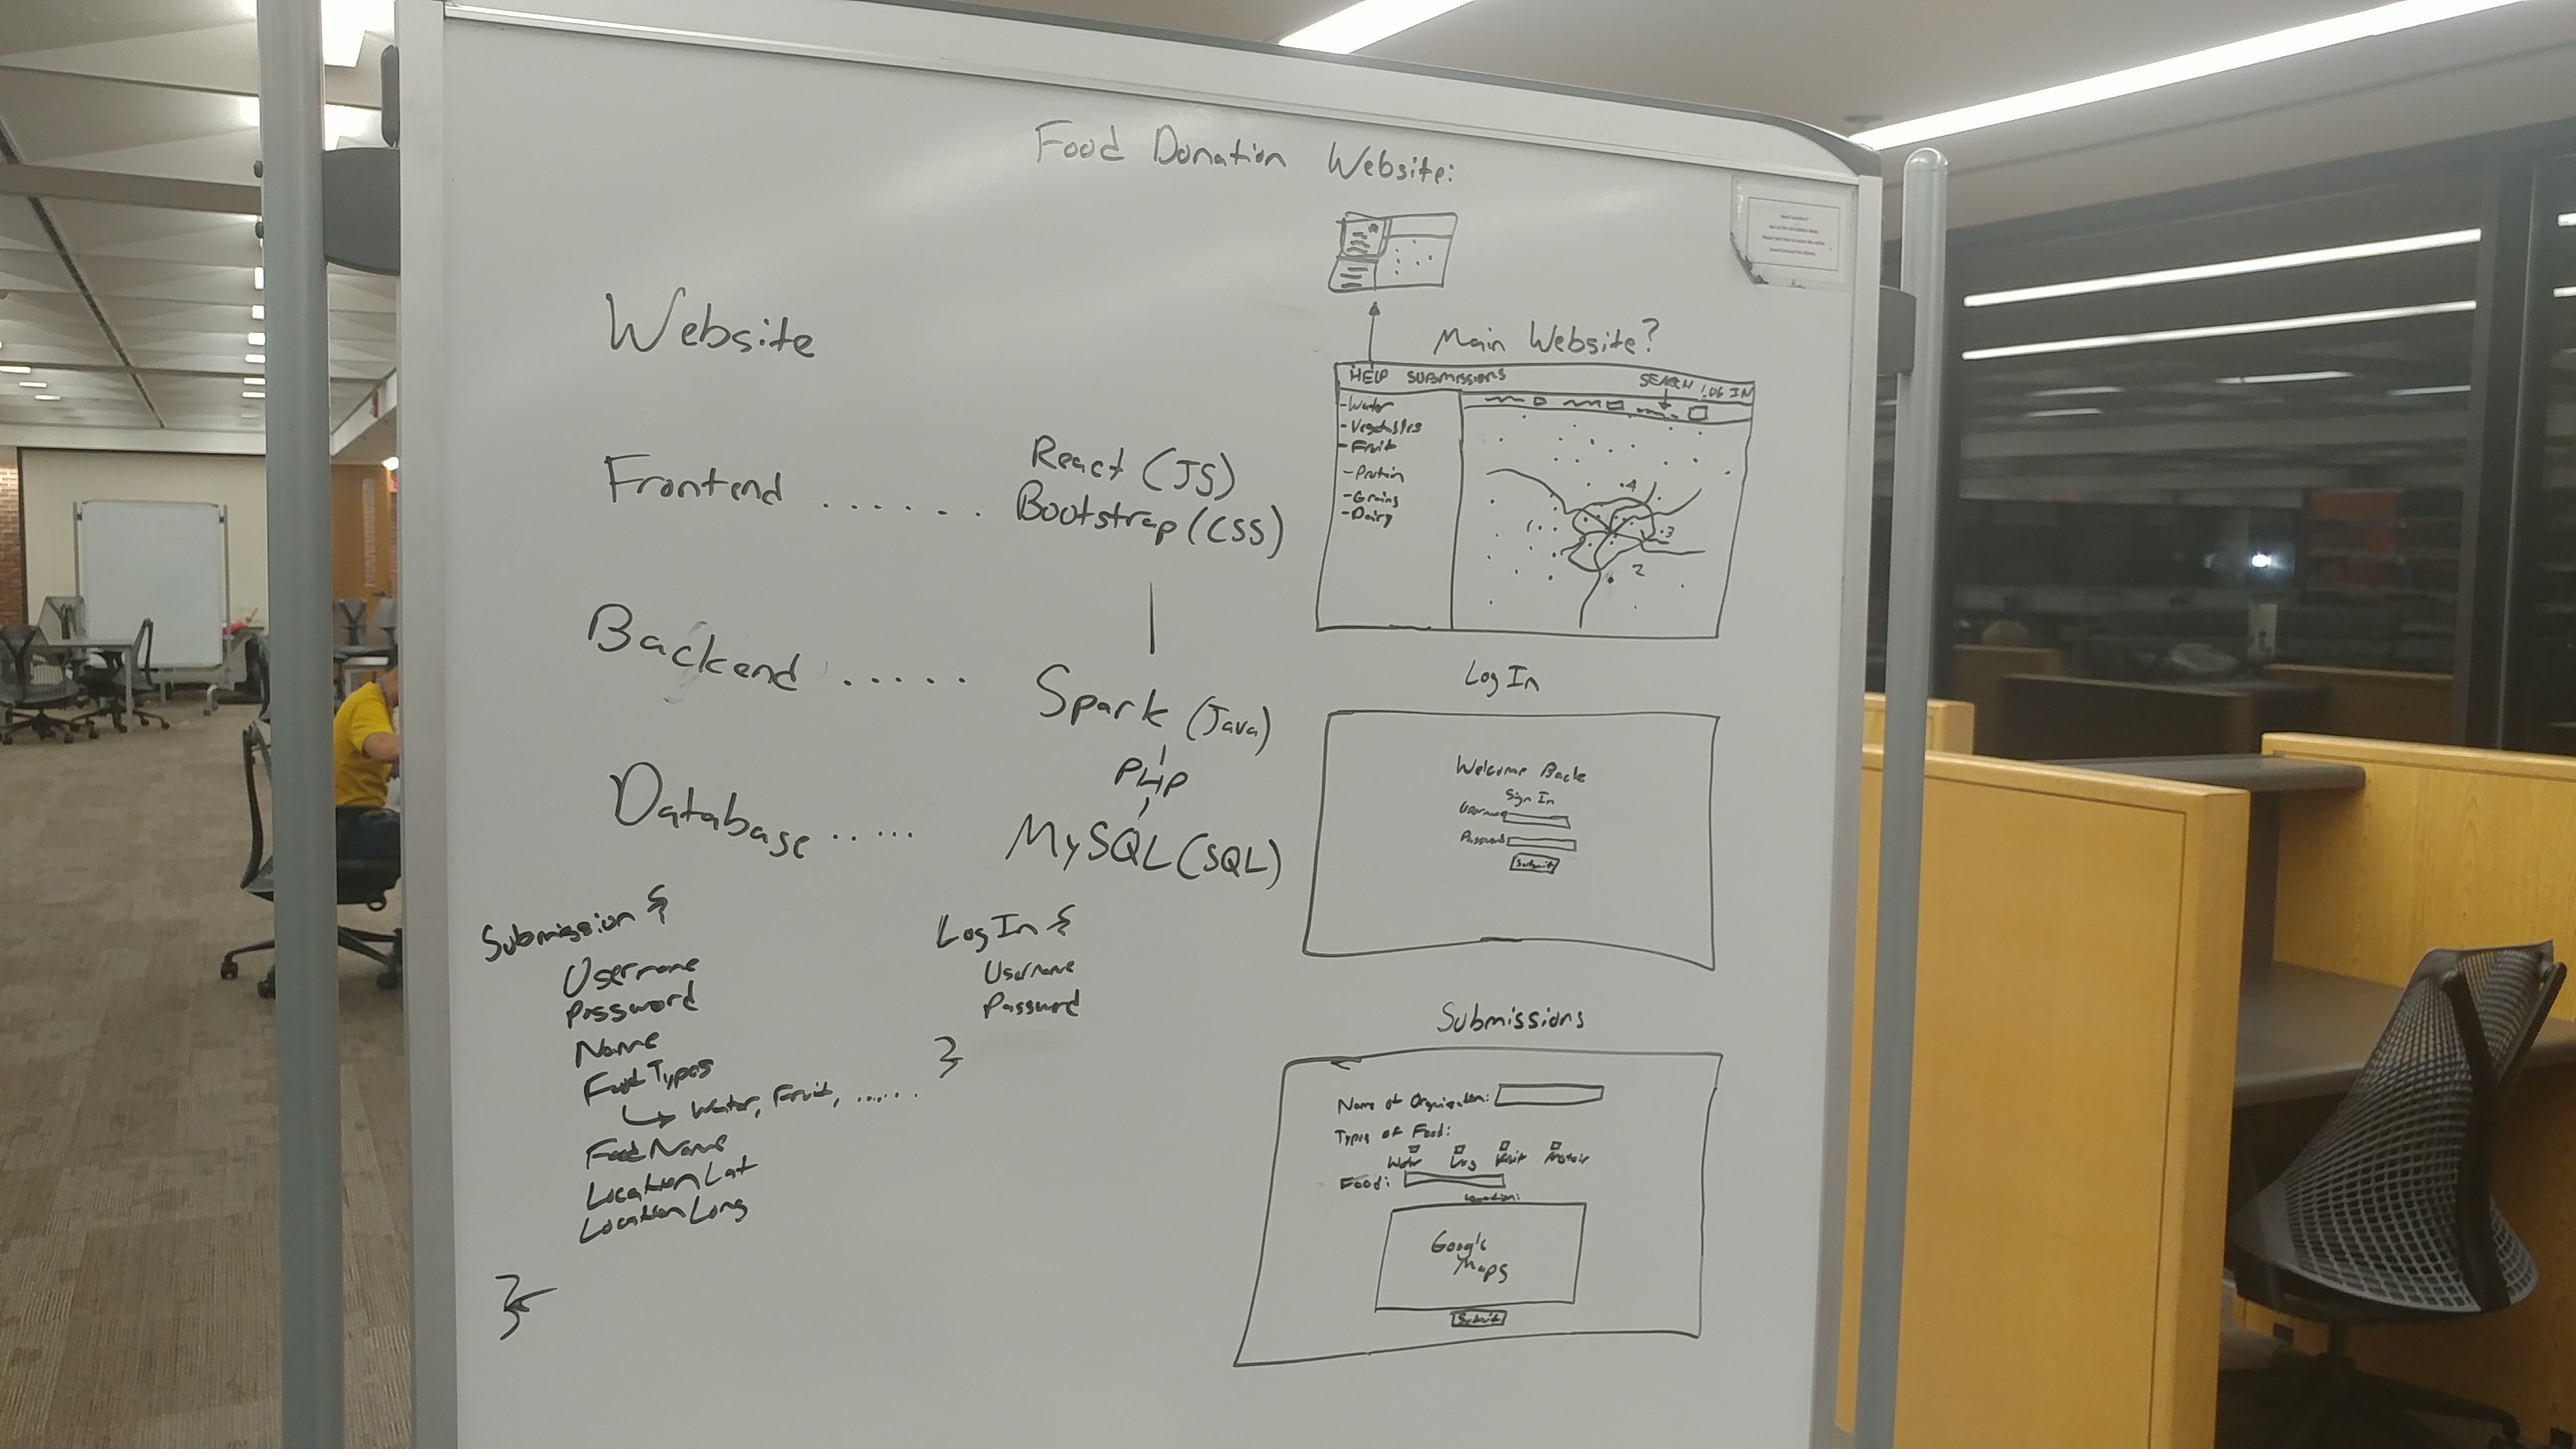 Food Donation Website:
Website
Frontend ...... React (JS)
Bootstrap (CSS)
Backend ..... Spark (Java)
PHP
Database ..... MySQL (SQL)
Submission {
Username
Password
Name
Food Types
Water, Fruit, ......
Food Name
Location Lat
Location Long
}
Log In {
Username
Password
}
Main Website?
HELP SUBMISSIONS SEARCH LOG IN
-Water
-Vegetables
-Fruit
-Protein
-Grains
-Dairy
1
4
3
2
Log In
Welcome Back
Sign In
Username
Password
Submit
Submissions
Name of Organization:
Types of Food:
Water Veg Fruit Protein
Food:
Location:
Google
Maps
Submit